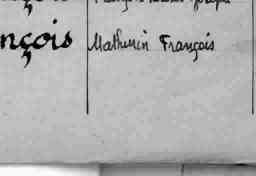 nçois Mathurin François